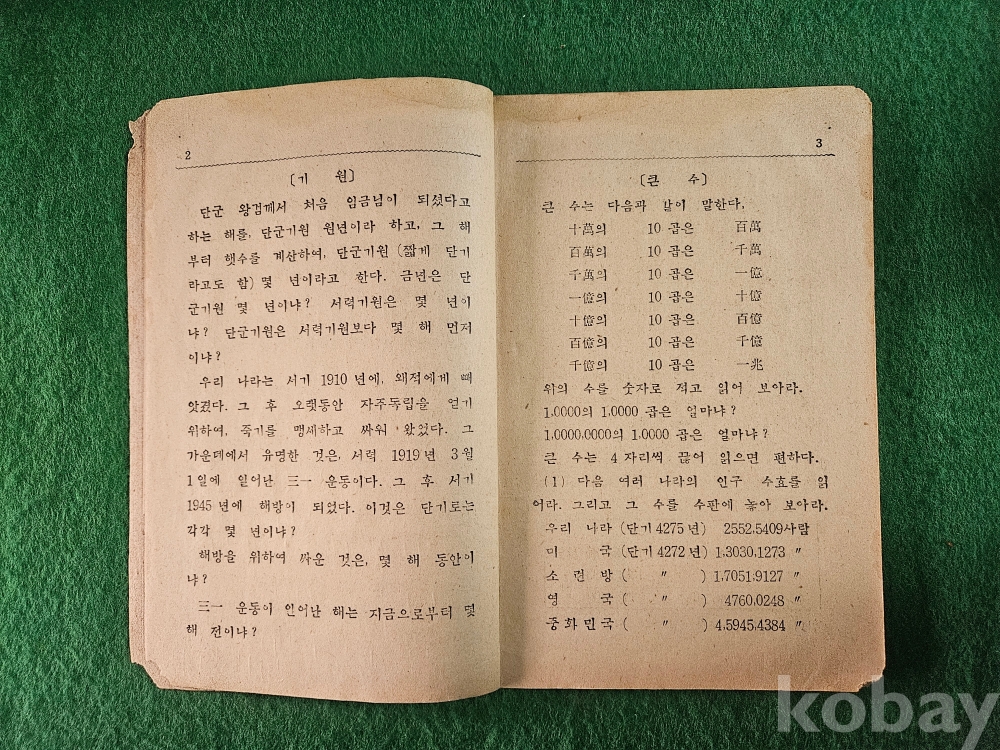 2
〔기 원〕
단군 왕검께서 처음 임금님이 되셨다고
하는 해를, 단군기원 원년이라 하고, 그 해
부터 햇수를 계산하여, 단군기원 (짧게 단기
라고도 함) 몇 년이라고 한다. 금년은 단
군기원 몇 년이냐? 서력기원은 몇 년이
냐? 단군기원은 서력기원보다 몇 해 먼저
이냐?
우리 나라는 서기 1910년에, 왜적에게 빼
앗겼다. 그 후 오랫동안 자주독립을 얻기
위하여, 죽기를 맹세하고 싸워 왔었다. 그
가운데에서 유명한 것은, 서력 1919년 3월
1일에 일어난 三一 운동이다. 그 후 서기
1945년에 해방이 되었다. 이것은 단기로는
각각 몇 년이냐?
해방을 위하여 싸운 것은, 몇 해 동안이
냐?
三一 운동이 일어난 해는 지금으로부터 몇
해 전이냐?
3
〔큰 수〕
큰 수는 다음과 같이 말한다,
十萬의 10 곱은 百萬
百萬의 10 곱은 千萬
千萬의 10 곱은 一億
一億의 10 곱은 十億
十億의 10 곱은 百億
百億의 10 곱은 千億
千億의 10 곱은 一兆
위의 수를 숫자로 적고 읽어 보아라.
1,0000의 1,0000 곱은 얼마냐?
1,0000,0000의 1,0000 곱은 얼마냐?
큰 수는 4자리씩 끊어 읽으면 편하다.
(1) 다음 여러 나라의 인구 수효를 읽
어라. 그리고 그 수를 수판에 놓아 보아라.
우리 나라 (단기 4275년) 2552,5409사람
미 국 (단기 4272년) 1,3030,1273 〃
소 련 방 ( 〃 ) 1,7051,9127 〃
영 국 ( 〃 ) 4760,0248 〃
중화민국 ( 〃 ) 4,5945,4384 〃
kobay